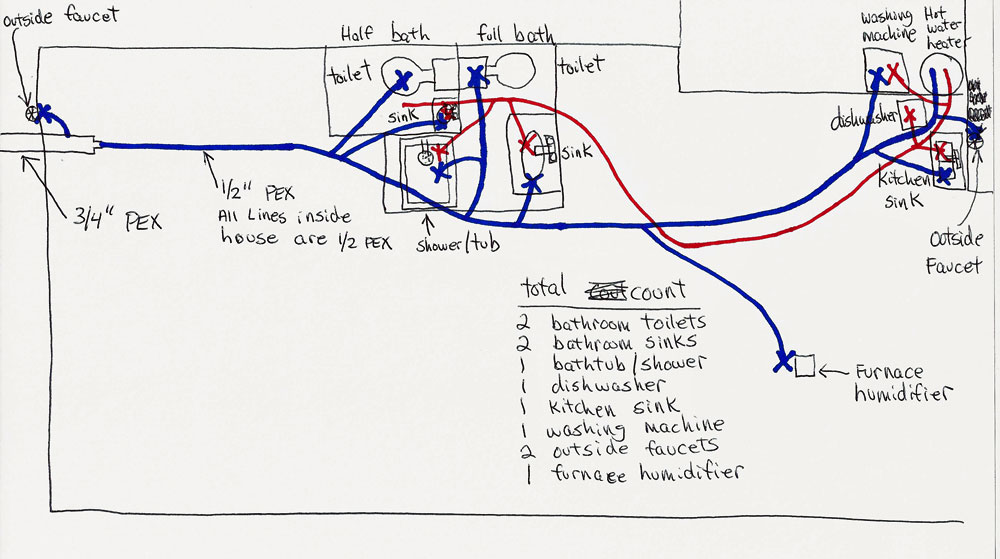 outside faucet
Half bath
full bath
washing
machine
Hot
water
heater
toilet
toilet
sink
dishwasher
sink
kitchen
sink
3/4" PEX
1/2" PEX
All Lines inside
house are 1/2 PEX
shower/tub
outside
Faucet
total count
2 bathroom toilets
2 bathroom sinks
1 bathtub/shower
1 dishwasher
1 kitchen sink
1 washing machine
2 outside faucets
1 furnace humidifier
Furnace
humidifier